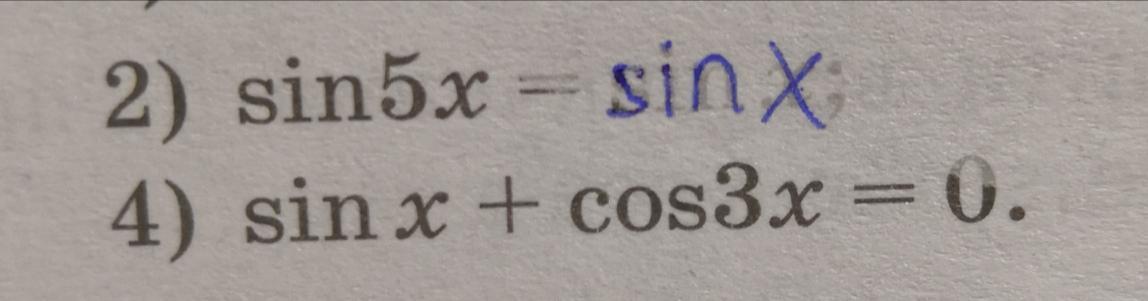 2) sin5x = sin x;
4) sin x + cos3x = 0.